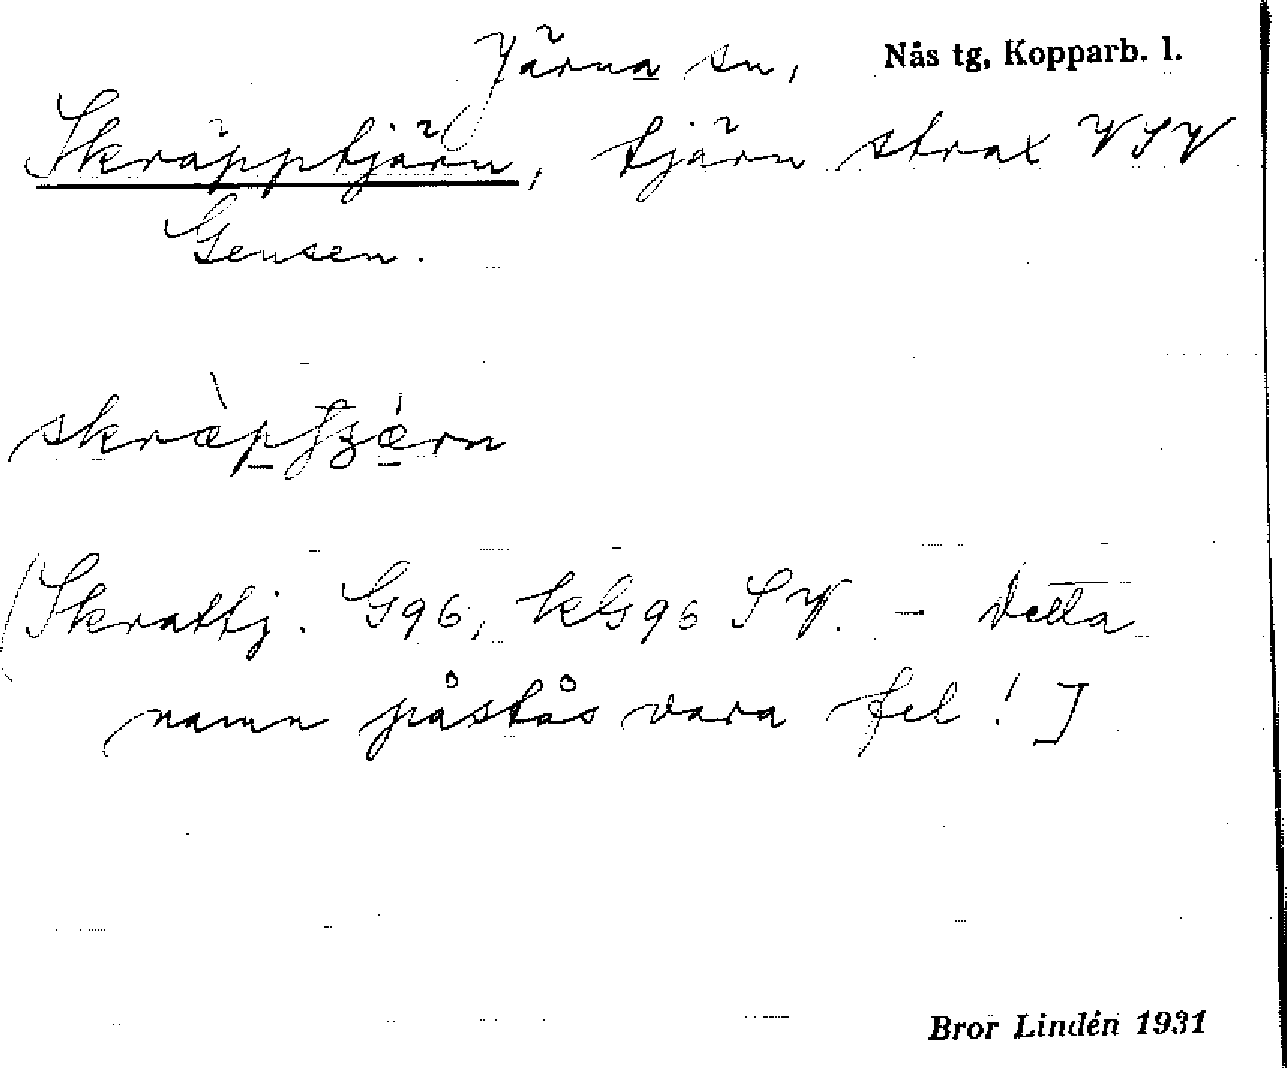 Järna sn, Nås tg, Kopparb. l.
Skräpptjärn, tjärn strax VSV
Gensen.
skræ̀pt͡ʒǽrn
(Skrattj. G96, kG96 SV. – Detta
namn påstås vara fel!]
Bror Lindén 1931